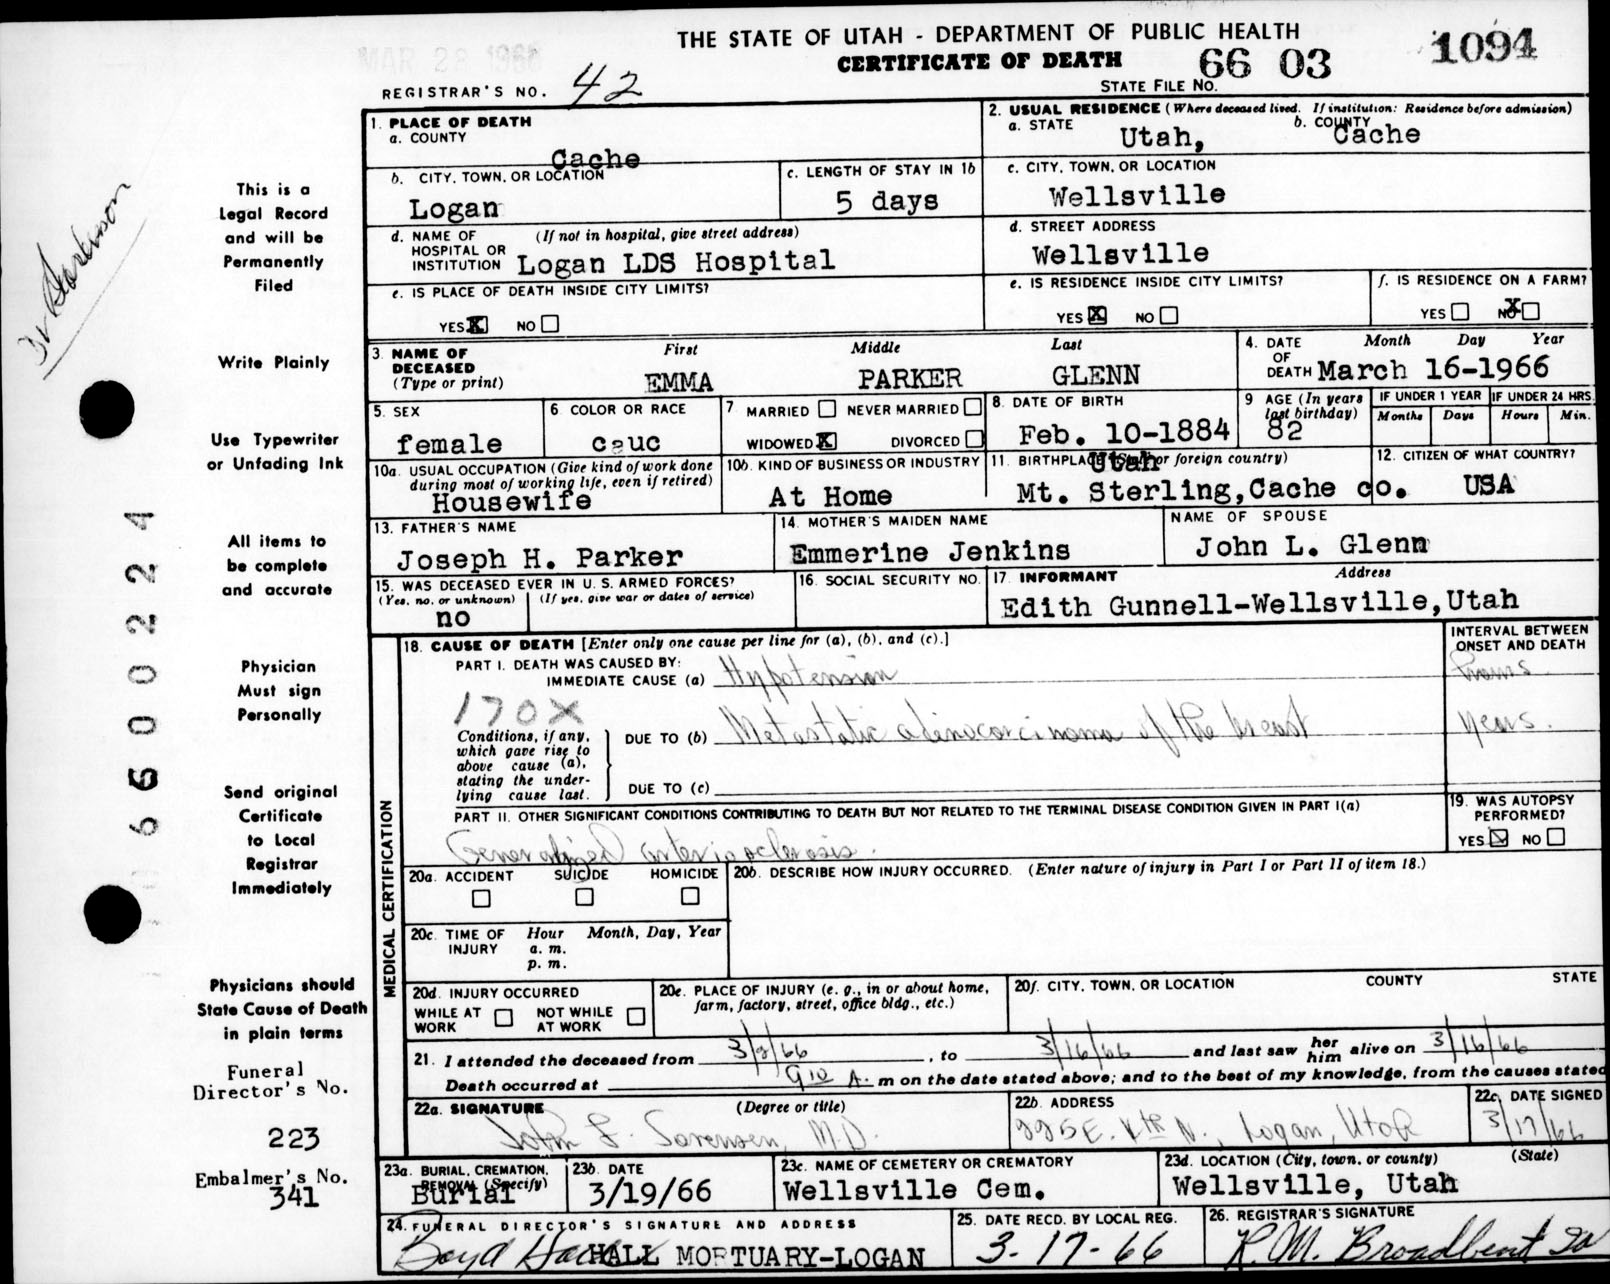 THE STATE OF UTAH - DEPARTMENT OF PUBLIC HEALTH
CERTIFICATE OF DEATH 66 03 1094
MAR 28 1966
REGISTRAR'S NO. 42
STATE FILE NO.
1. PLACE OF DEATH
a. COUNTY
Cache
2. USUAL RESIDENCE (Where deceased lived. If institution: Residence before admission)
a. STATE b. COUNTY
Utah, Cache
b. CITY, TOWN, OR LOCATION
Logan
c. LENGTH OF STAY IN 1b
5 days
c. CITY, TOWN, OR LOCATION
Wellsville
d. NAME OF HOSPITAL OR INSTITUTION (If not in hospital, give street address)
Logan LDS Hospital
d. STREET ADDRESS
Wellsville
e. IS PLACE OF DEATH INSIDE CITY LIMITS?
YES X NO
e. IS RESIDENCE INSIDE CITY LIMITS?
YES X NO
f. IS RESIDENCE ON A FARM?
YES NO X
3. NAME OF DECEASED (Type or print)
First Middle Last
EMMA PARKER GLENN
4. DATE OF DEATH Month Day Year
March 16-1966
5. SEX
female
6. COLOR OR RACE
cauc
7. MARRIED NEVER MARRIED
WIDOWED X DIVORCED
8. DATE OF BIRTH
Feb. 10-1884
9. AGE (In years last birthday)
82
IF UNDER 1 YEAR IF UNDER 24 HRS.
Months Days Hours Min.
10a. USUAL OCCUPATION (Give kind of work done during most of working life, even if retired)
Housewife
10b. KIND OF BUSINESS OR INDUSTRY
At Home
11. BIRTHPLACE (State or foreign country)
Utah
Mt. Sterling, Cache co.
12. CITIZEN OF WHAT COUNTRY?
USA
13. FATHER'S NAME
Joseph H. Parker
14. MOTHER'S MAIDEN NAME
Emmerine Jenkins
NAME OF SPOUSE
John L. Glenn
15. WAS DECEASED EVER IN U. S. ARMED FORCES?
(Yes, no, or unknown) (If yes, give war or dates of service)
no
16. SOCIAL SECURITY NO.
17. INFORMANT Address
Edith Gunnell-Wellsville, Utah
18. CAUSE OF DEATH [Enter only one cause per line for (a), (b), and (c).]
INTERVAL BETWEEN ONSET AND DEATH
PART I. DEATH WAS CAUSED BY:
IMMEDIATE CAUSE (a) Hypotension hours
170X
Conditions, if any, which gave rise to above cause (a), stating the underlying cause last.
DUE TO (b) Metastatic adenocarcinoma of the breast years.
DUE TO (c)
PART II. OTHER SIGNIFICANT CONDITIONS CONTRIBUTING TO DEATH BUT NOT RELATED TO THE TERMINAL DISEASE CONDITION GIVEN IN PART I(a)
Generalized arteriosclerosis.
19. WAS AUTOPSY PERFORMED?
YES NO
20a. ACCIDENT SUICIDE HOMICIDE
20b. DESCRIBE HOW INJURY OCCURRED. (Enter nature of injury in Part I or Part II of item 18.)
20c. TIME OF INJURY Hour Month, Day, Year
a. m.
p. m.
20d. INJURY OCCURRED
WHILE AT WORK NOT WHILE AT WORK
20e. PLACE OF INJURY (e. g., in or about home, farm, factory, street, office bldg., etc.)
20f. CITY, TOWN, OR LOCATION COUNTY STATE
21. I attended the deceased from 3/2/66, to 3/16/66 and last saw her him alive on 3/16/66
Death occurred at 9 10 A. m on the date stated above; and to the best of my knowledge, from the causes stated
22a. SIGNATURE (Degree or title)
John L. Sorensen, M.D.
22b. ADDRESS
225 E. 4th N., Logan, Utah
22c. DATE SIGNED
3/17/66
23a. BURIAL, CREMATION, REMOVAL (Specify)
Burial
23b. DATE
3/19/66
23c. NAME OF CEMETERY OR CREMATORY
Wellsville Cem.
23d. LOCATION (City, town, or county) (State)
Wellsville, Utah
24. FUNERAL DIRECTOR'S SIGNATURE AND ADDRESS
Boyd HALL MORTUARY-LOGAN
25. DATE RECD. BY LOCAL REG.
3-17-66
26. REGISTRAR'S SIGNATURE
R.M. Broadbent
MEDICAL CERTIFICATION
This is a
Legal Record
and will be
Permanently
Filed
Write Plainly
Use Typewriter
or Unfading Ink
All items to
be complete
and accurate
Physician
Must sign
Personally
Send original
Certificate
to Local
Registrar
Immediately
Physicians should
State Cause of Death
in plain terms
Funeral
Director's No.
223
Embalmer's No.
341
Dr Sorenson
6600224